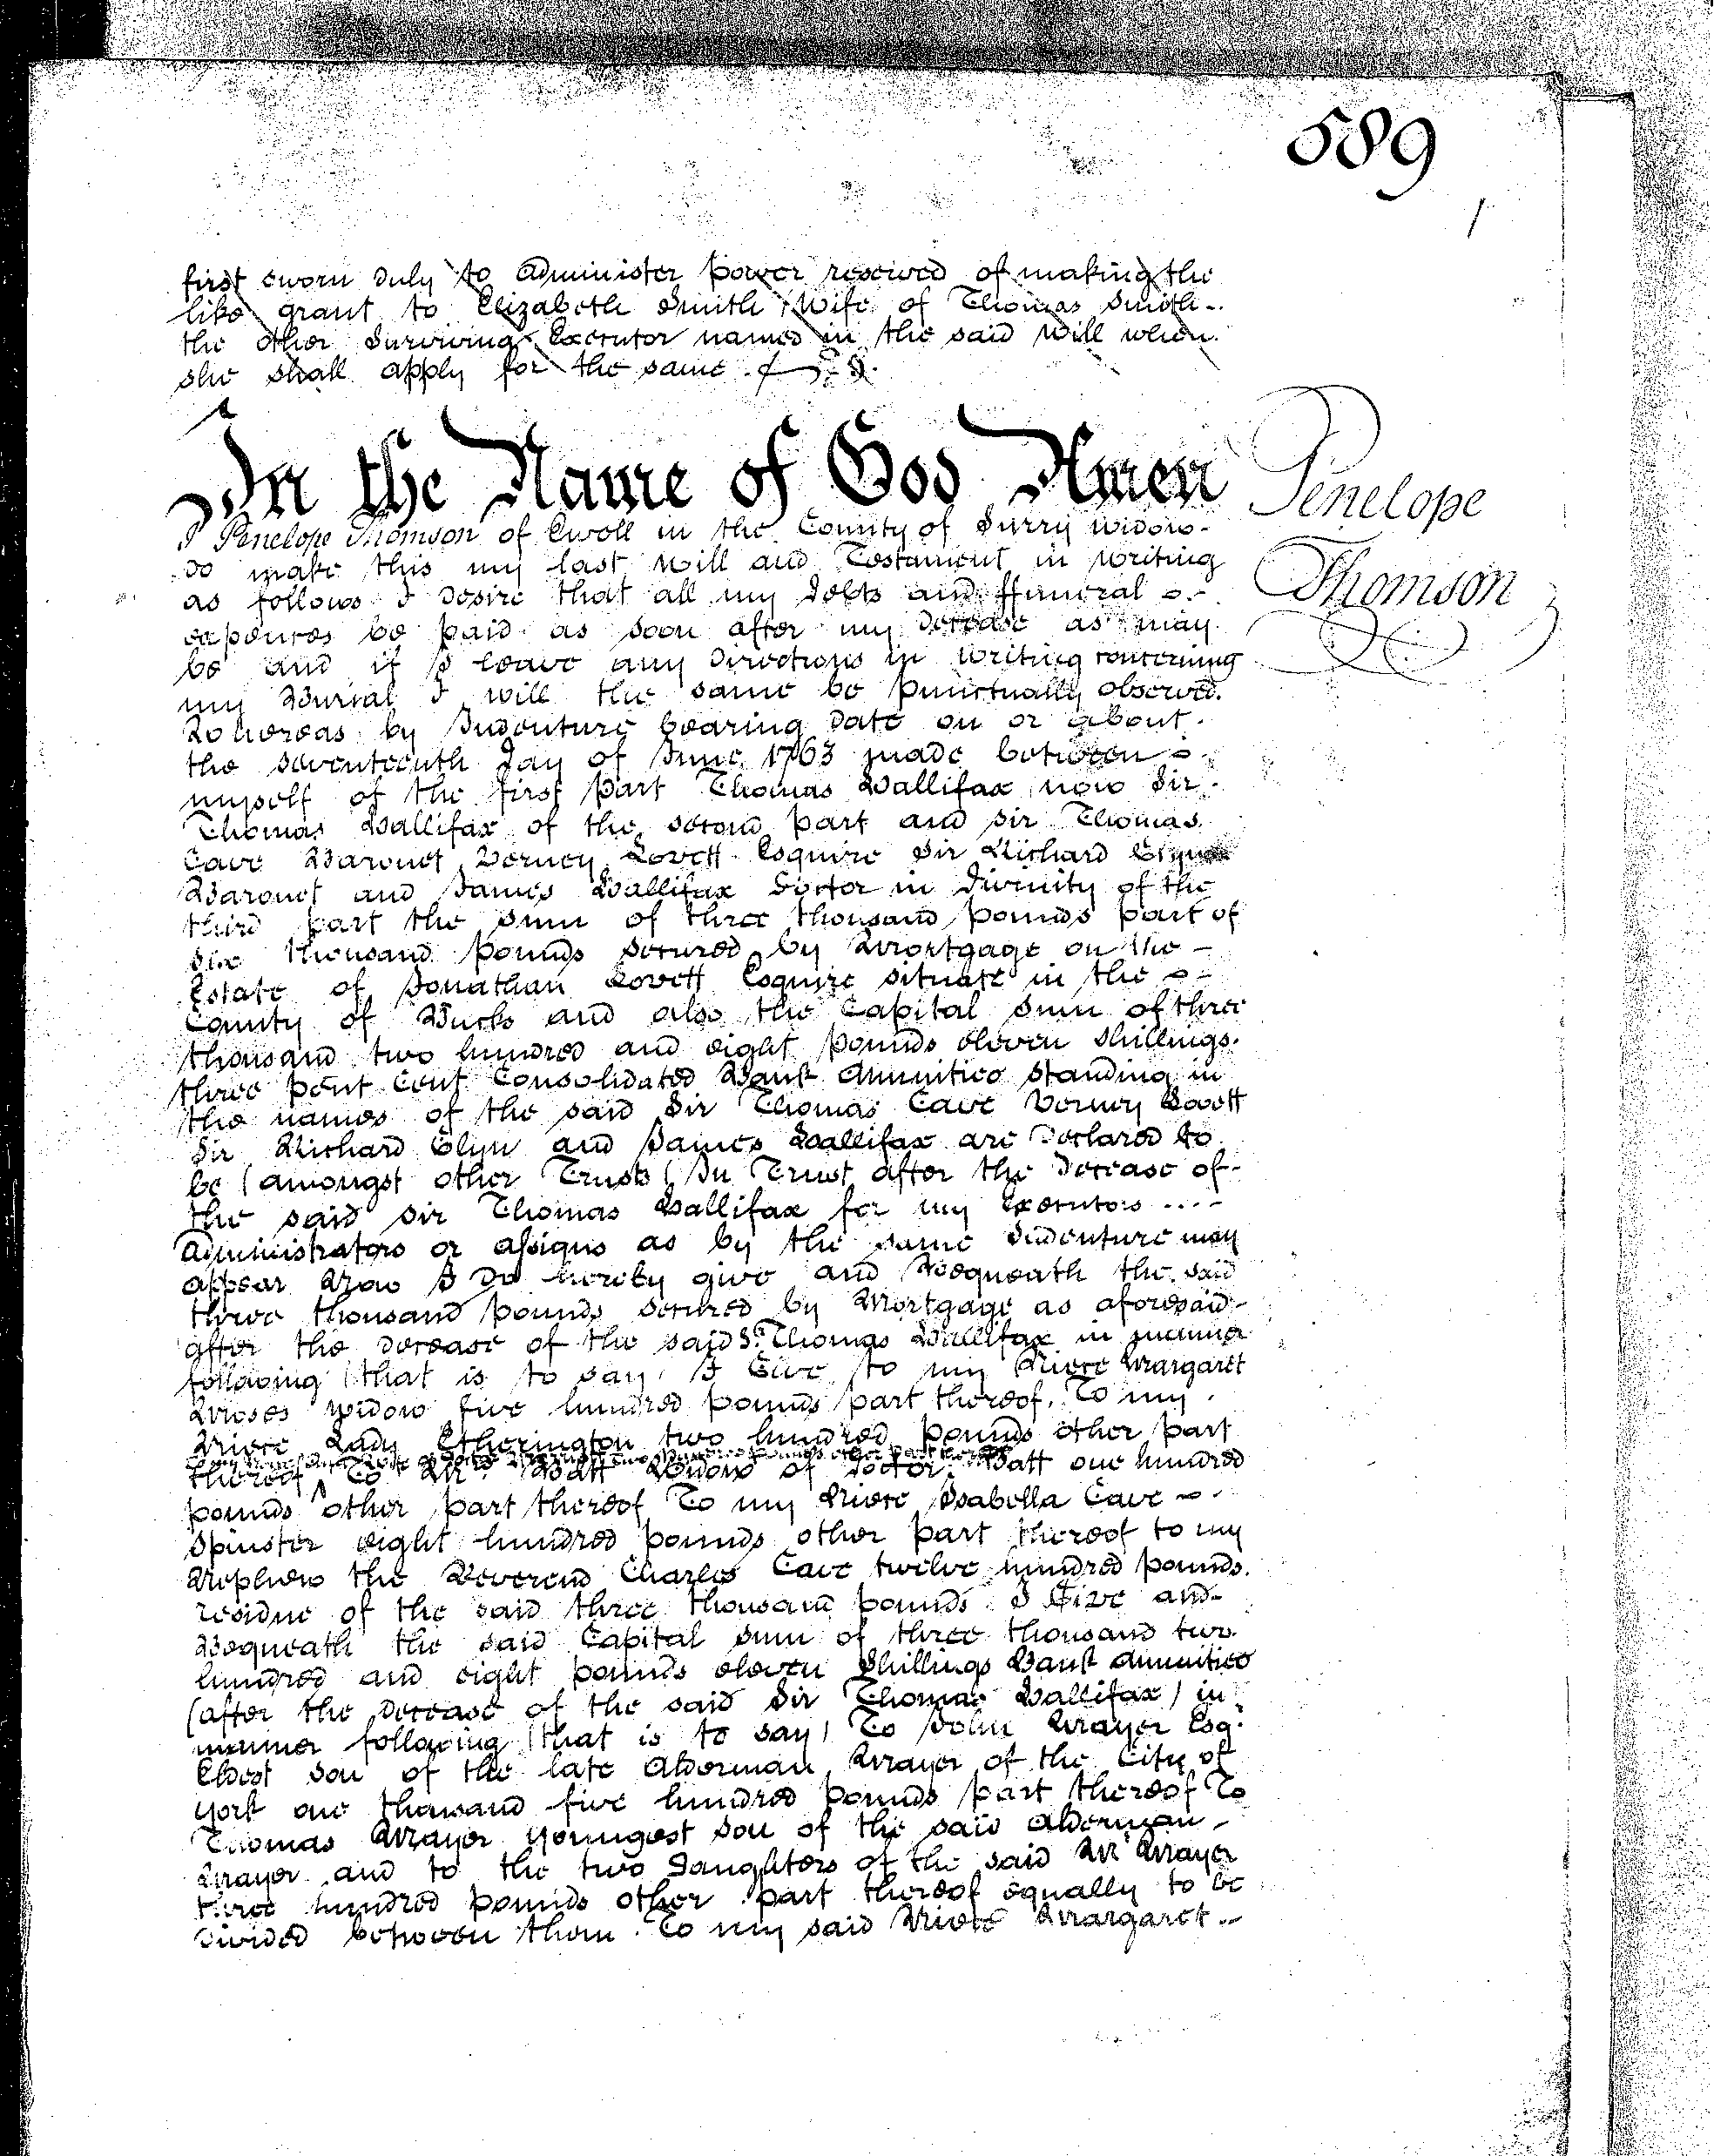 589
first sworn duly to Administer power reserved of making the
like grant to Elizabeth Smith Wife of Thomas Smith
the other Surviving Executor named in the said Will when
she shall apply for the same
In the Name of God Amen
Penelope
Thomson
I Penelope Thomson of Ewell in the County of Surry Widow
do make this my last Will and Testament in Writing
as follows I desire that all my Debts and ffuneral
expences be paid as soon after my decease as may
be and if I leave any directions in writing concerning
my Burial I will the same be punctually observed.
Whereas by Indenture bearing date on or about
the seventeenth Day of June 1763 made between
myself of the first part Thomas Hallifax now Sir
Thomas Hallifax of the second part and Sir Thomas
Cave Baronet Verney Lovett Esquire Sir Richard Glynn
Baronet and James Hallifax Doctor in Divinity of the
third part the sum of three thousand pounds part of
six thousand pounds secured by Mortgage on the
Estate of Jonathan Lovett Esquire situate in the
County of Bucks and also the Capital sum of three
thousand two hundred and eight pounds eleven shillings
three pent Cent Consolidated Bank Annuities standing in
the names of the said Sir Thomas Cave Verney Lovett
Sir Richard Glyn and James Hallifax are declared to
be (amongst other Trusts) In Trust after the decease of
the said Sir Thomas Hallifax for my Executors
Administrators or assigns as by the same Indenture may
appear Now I Do hereby give and Bequeath the said
three thousand pounds secured by Mortgage as aforesaid
after the decease of the said Sr. Thomas Hallifax in manner
following (that is to say) I Give to my Niece Margaret
Moses widow five hundred pounds part thereof. To my
Niece Lady Etherington two hundred pounds other part
two hundred pounds other part thereof
thereof To Mrs. Batt Widow of Doctor Batt one hundred
pounds other part thereof To my Niece Isabella Cave
Spinster eight hundred pounds other part thereof to my
Nephew the Reverend Charles Cave twelve hundred pounds
residue of the said three thousand pounds I Give and
Bequeath the said Capital sum of three thousand two
hundred and eight pounds eleven Shillings Bank Annuities
(after the decease of the said Sir Thomas Hallifax) in
manner following (that is to say) To John Mayer Esqr.
Eldest son of the late Alderman Mayer of the City of
York one thousand five hundred pounds part thereof To
Thomas Mayer youngest son of the said Alderman
Mayer and to the two Daughters of the said Mr. Mayer
three hundred pounds other part thereof equally to be
divided between them. To my said Niece Margaret